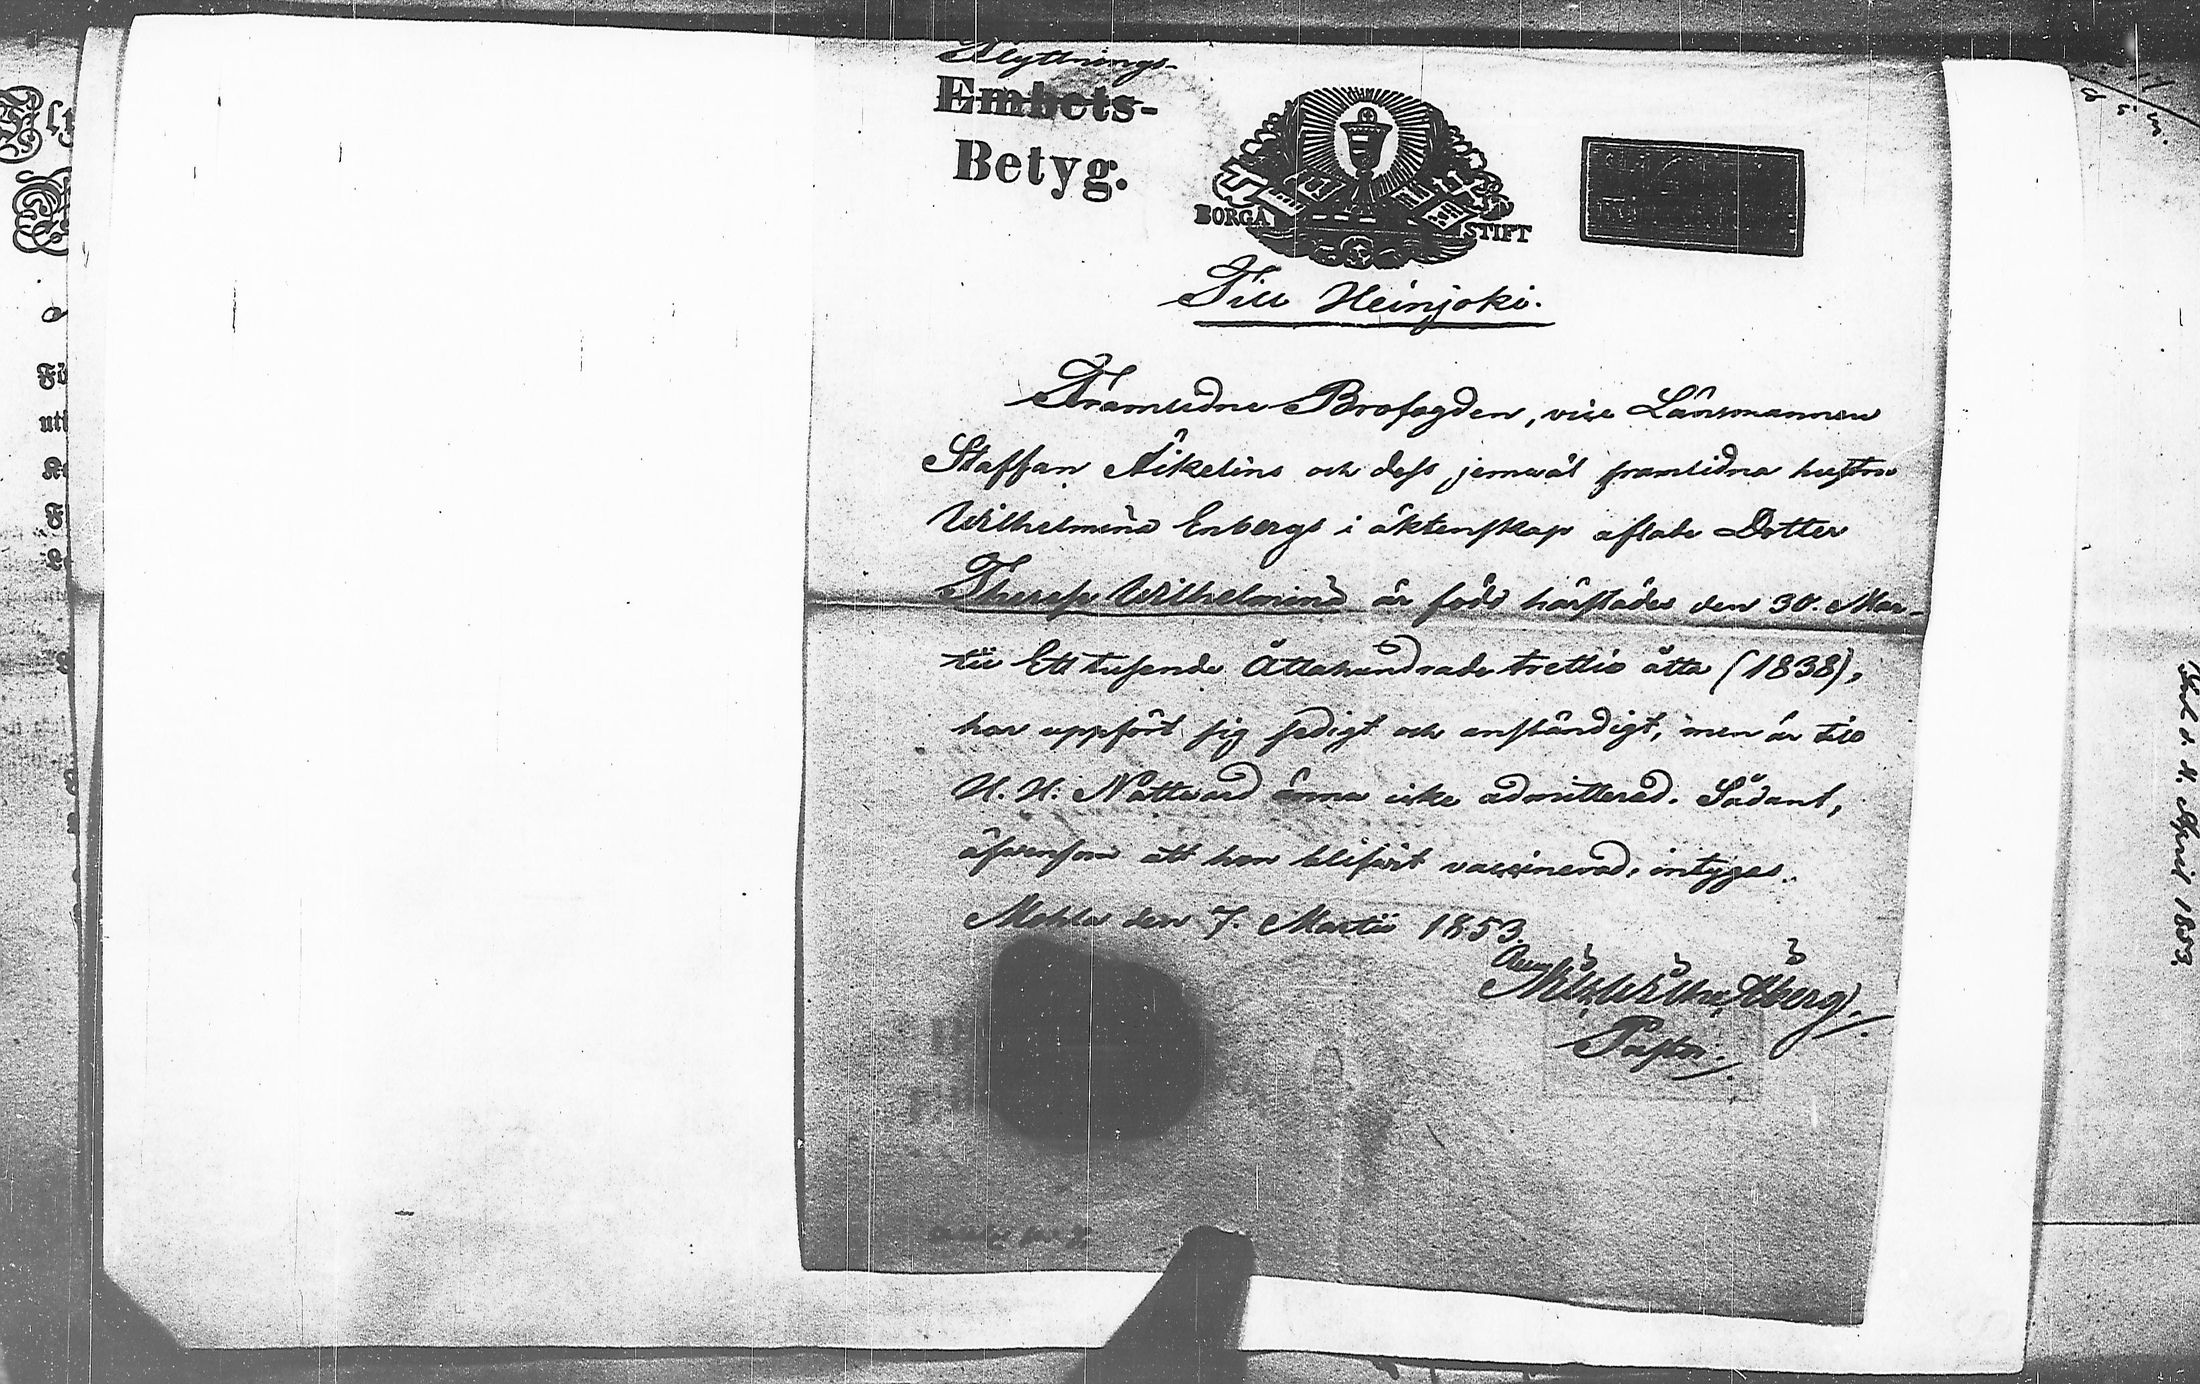 Flyttnings-
Embets-
Betyg.
BORGÅ STIFT
Till Heinjoki.
Framlidne Brofogden, vice Länsmannen
Staffan Äikelins och dess jemwäl framlidna hustru
Wilhelmina Enbergs i äktenskap aflade Dotter
Therese Wilhelmina är född härstädes den 30. Mar-
tii Ett tusende Åttahundrade trettio åtta (1838),
har uppfört sig sedigt och anständigt, men är till
H. H. Nattward ännu icke admitterad. Sådant,
äfvensom att hon blifwit vaccinerad, intygas.
Mohla den 7. Martii 1853.
Åberg.
Pastor.
d. 11. April 1853.